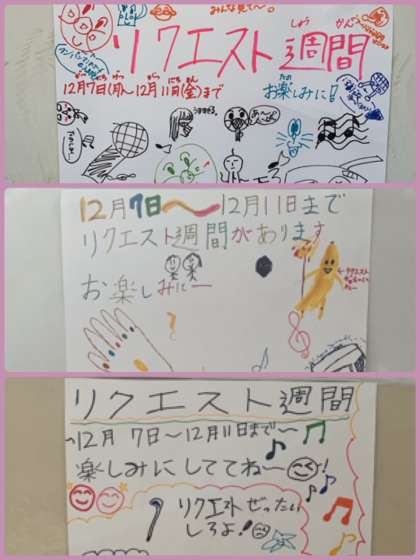 みんな見てネ。
リクエスト週間
しゅう かん
12月7日(月)〜12月11日(金)まで
お楽しみに!
12月7日〜12月11日まで
リクエスト週間があります
お楽しみにー
リクエスト週間
〜12月7日〜12月11日まで〜
楽しみにしててね〜!
リクエストぜったい
しろよ!